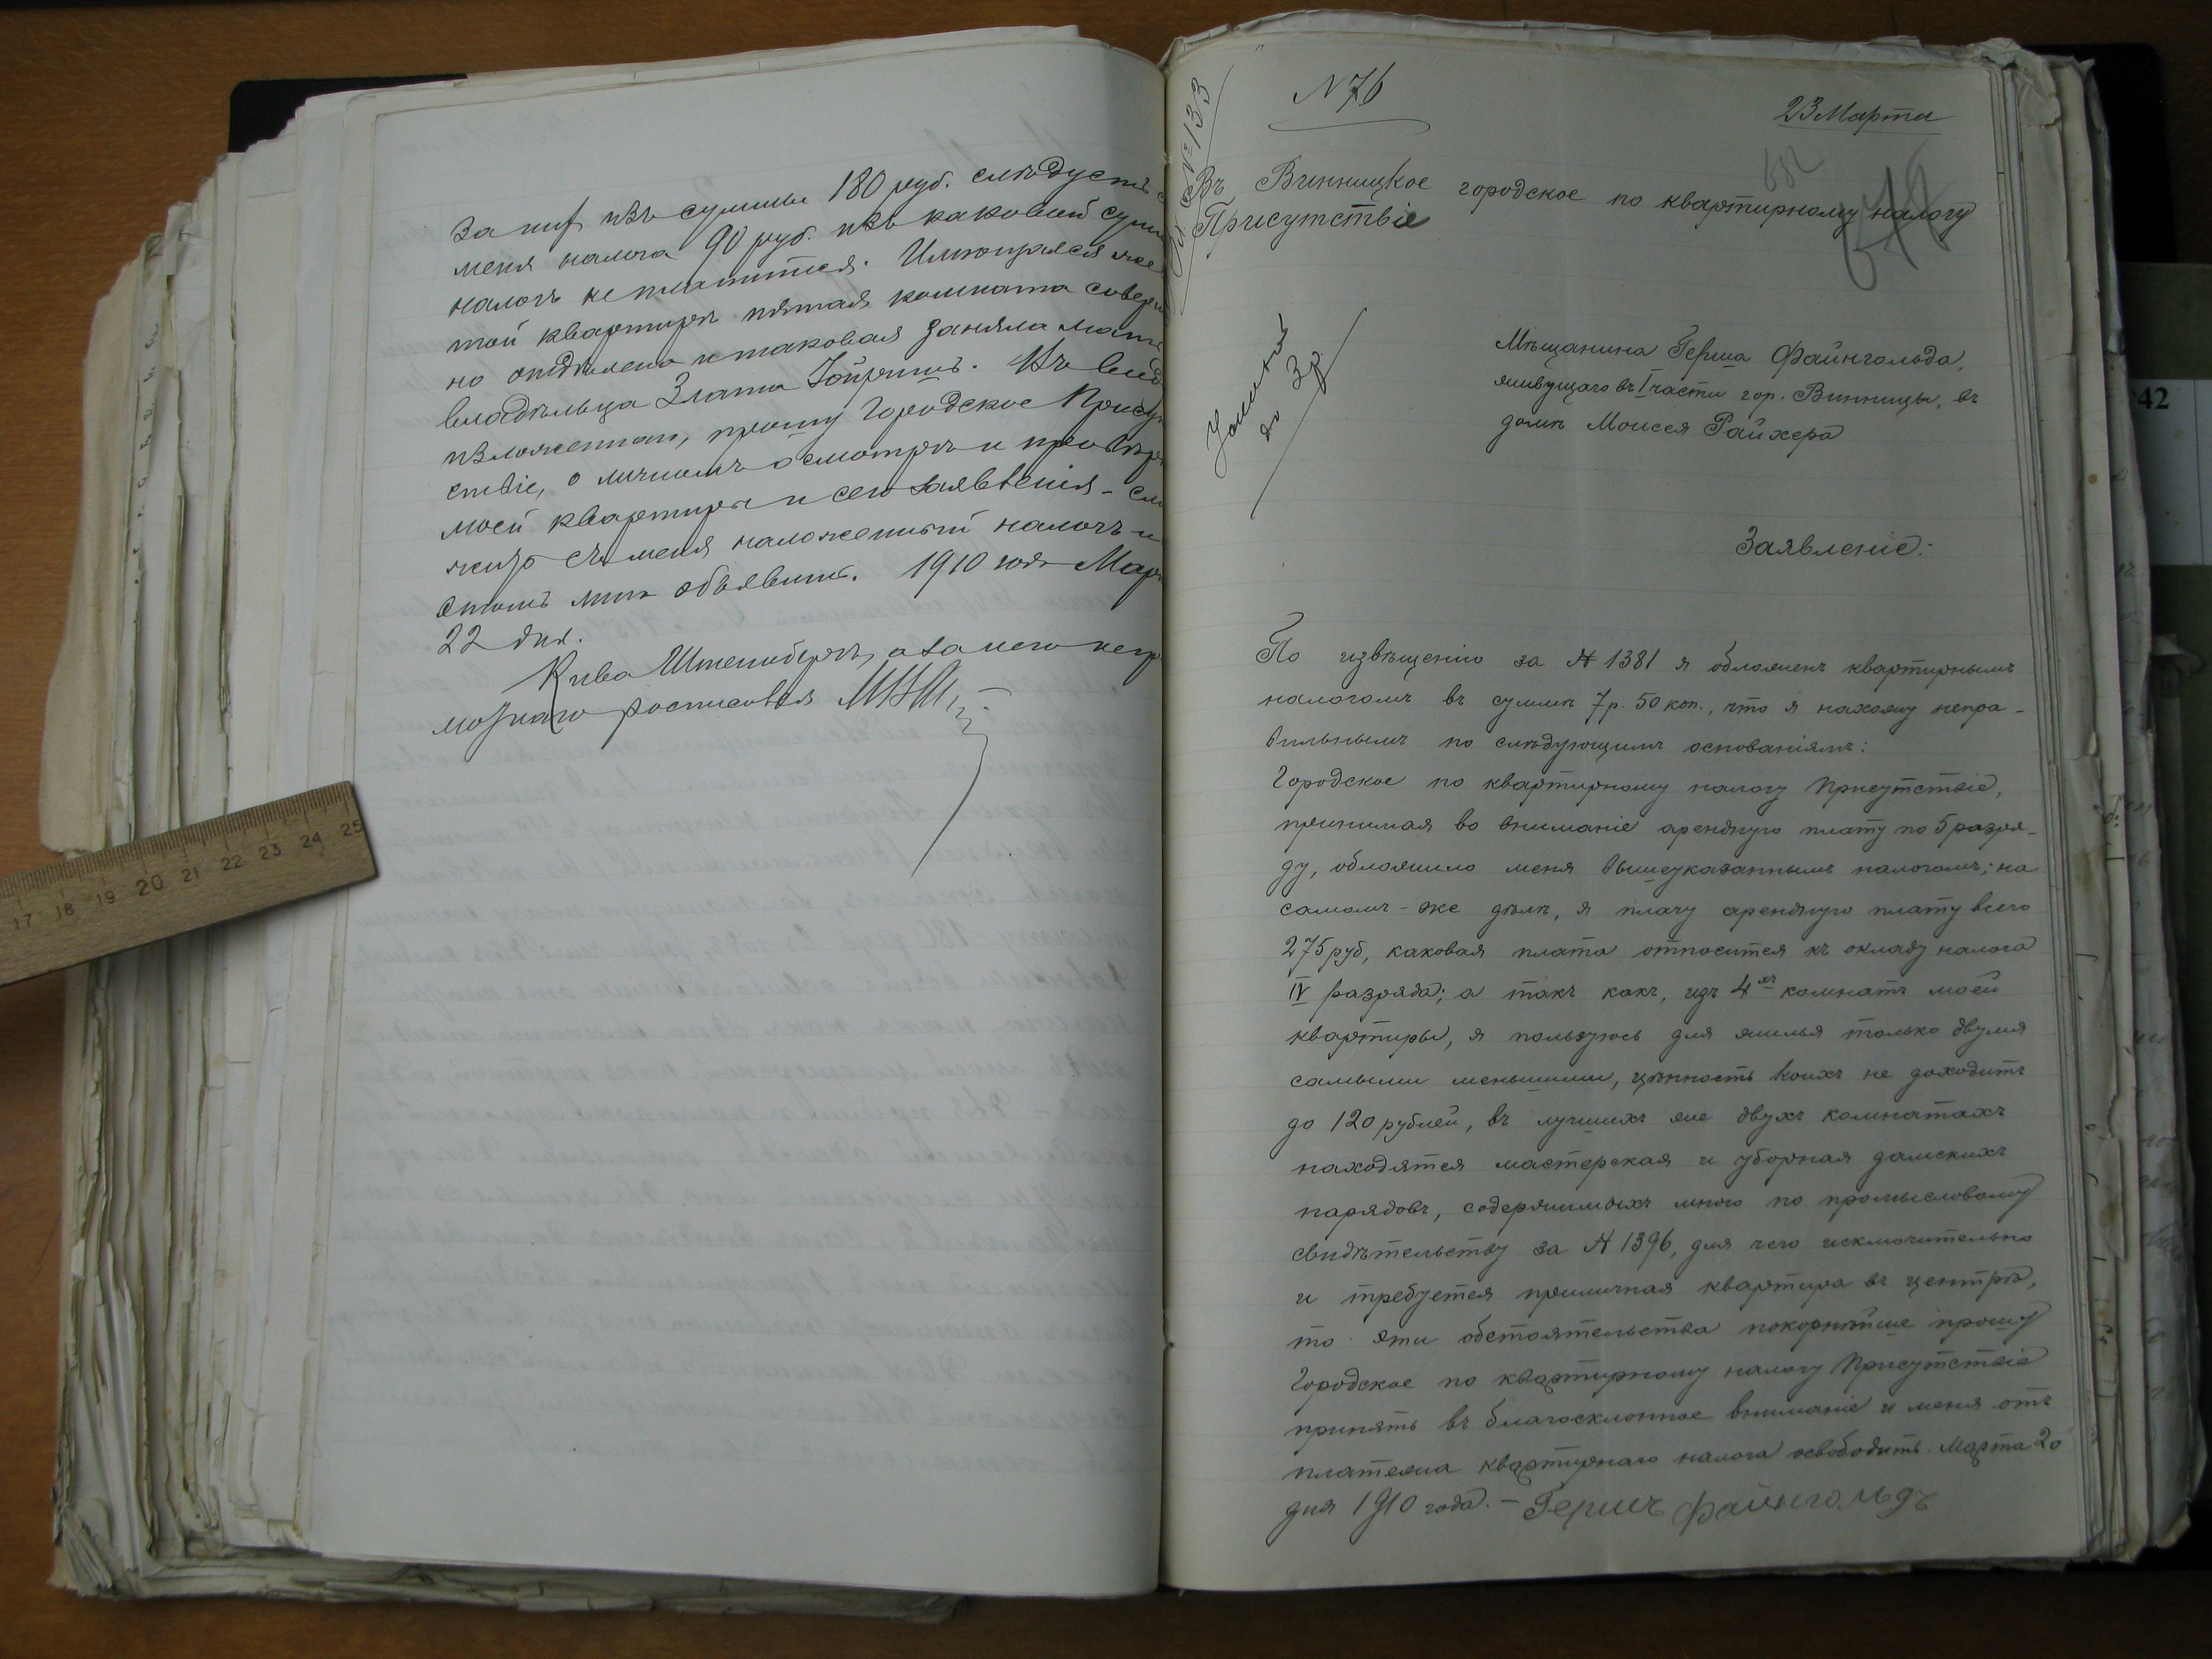 за них изъ суммы 180 руб. слѣдуетъ с
меня налога 90 руб. изъ каковой сумм
налогъ не платится. Имѣющаяся же
той квартиры пятая комната соверш
но отдѣлена и таковая заняла мат
владѣльца Злата
изложеннаго, прошу Городское Присут
ствіе, о личномъ осмотрѣ и провѣр
моей квартиры и сего заявленія - сл
жить съ меня наложенный налогъ и
о томъ мнѣ объявить. 1910 года Мар
22 дня.
Кива Штейнбергъ, а за него негр
мотнаго росписовся
Вх №133
N 76
23 Марта
682
Въ Винницкое городское по квартирному налогу
Присутствіе
до 3 р
Мѣщанина Герша Файнгольда,
живущаго въ I части гор. Винницы, въ
домѣ Моисея Райхера
Заявленіе:
По извѣщенію за № 1381 я обложенъ квартирнымъ
налогомъ въ суммѣ 7 р. 50 коп., что я нахожу непра-
вильнымъ по слѣдующимъ основаніямъ:
Городское по квартирному налогу Присутствіе,
принимая во вниманіе арендную плату по 5 разря-
ду, обложило меня вышеуказаннымъ налогомъ; на
самомъ-же дѣлѣ, я плачу арендную плату всего
275 руб, каковая плата относится къ окладу налога
IV разряда; а такъ какъ, изъ 4хъ комнатъ моей
квартиры, я пользуюсь для жилья только двумя
самыми меньшими, цѣнность коихъ не доходитъ
до 120 рублей, въ лучшихъ же двухъ комнатахъ
находятся мастерская и уборная дамскихъ
нарядовъ, содержимыхъ мною по промысловому
свидѣтельству за № 1396, для чего исключительно
и требуется приличная квартира въ центрѣ,
то эти обстоятельства покорнѣйше прошу
Городское по квартирному налогу Присутствіе
принять въ благосклонное вниманіе и меня отъ
платежа квартирнаго налога освободить. Марта 20
дня 1910 года. - Гершъ Файнгольдъ
17 18 19 20 21 22 23 24 25
42